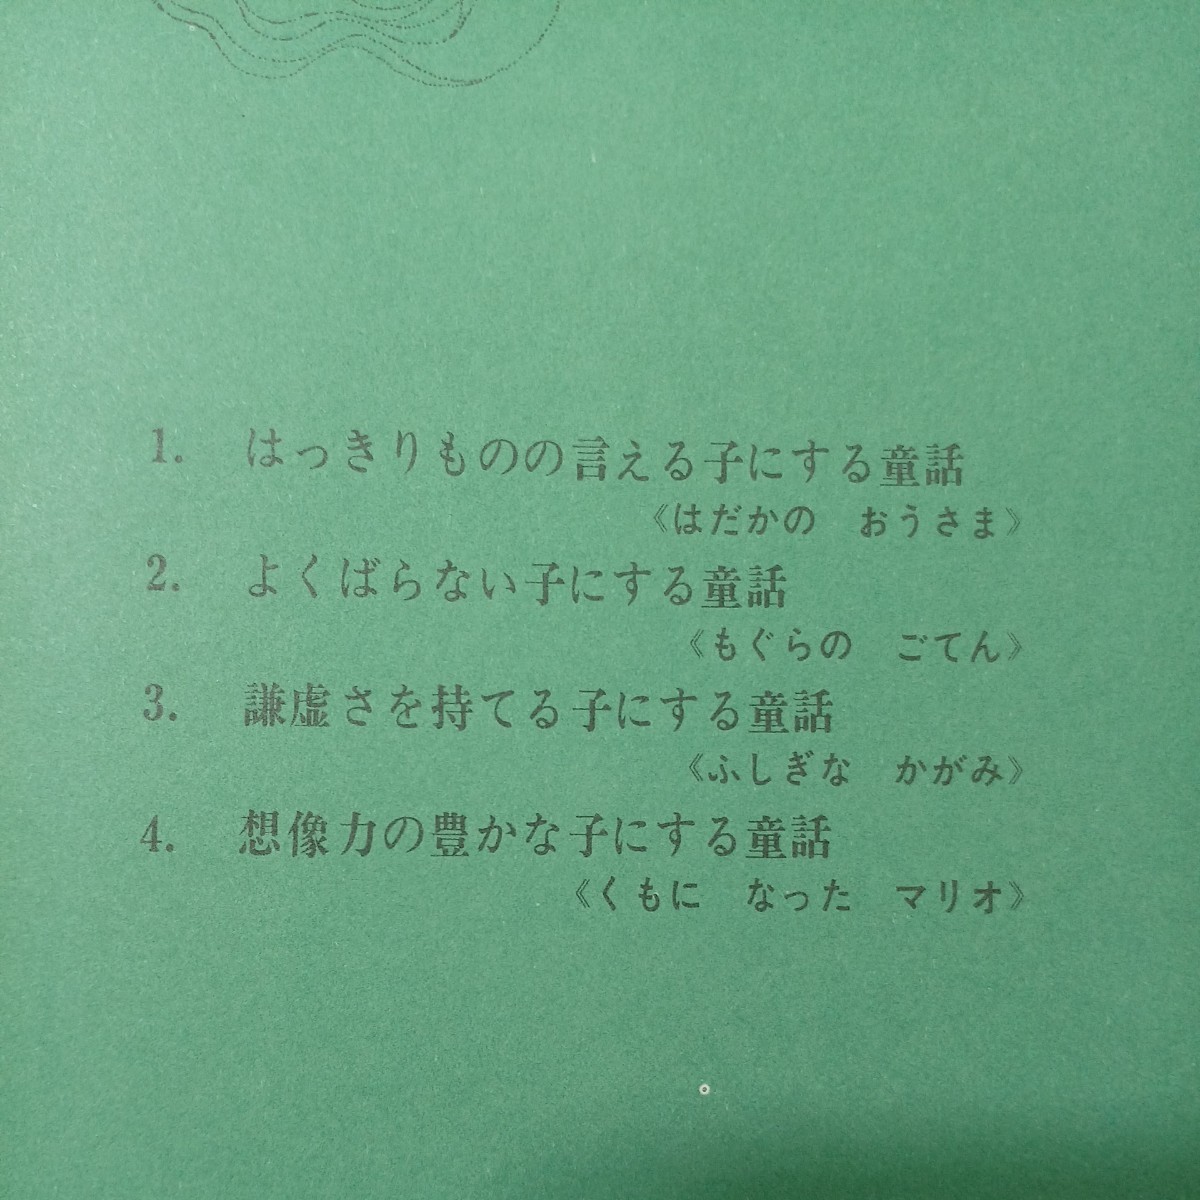 1. はっきりものの言える子にする童話
《はだかの　おうさま》
2. よくばらない子にする童話
《もぐらの　ごてん》
3. 謙虚さを持てる子にする童話
《ふしぎな　かがみ》
4. 想像力の豊かな子にする童話
《くもに　なった　マリオ》